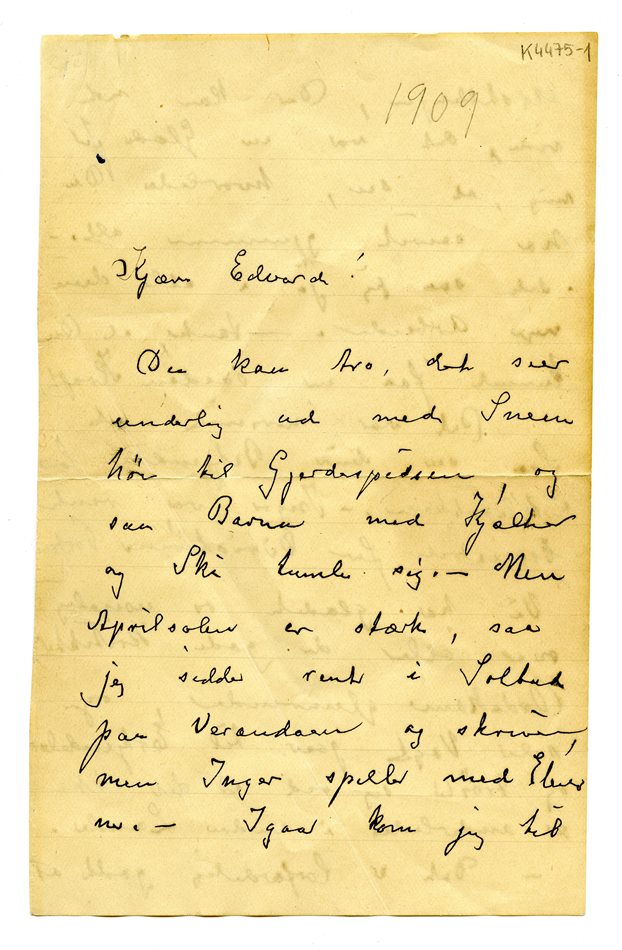 K4475-1
1909
Kjære Edvard!
Du kan tro, det seer
underlig ud med Sneen
hör til Gjerdespidsen, og
saa Barna med Kjælker
og Ski tumle sig. – Men
Aprilsolen er stærk, saa
jeg sidder rent i Solbad
paa Verandaen og skriver,
men Inger spiller med Elever
ne. – Igaar kom jeg til